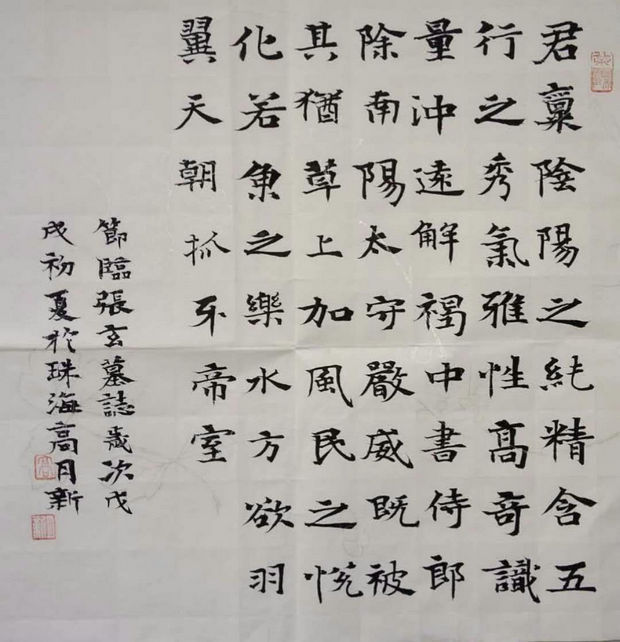 君稟陰陽之純精含五
行之秀氣雅性高奇識
量沖遠解褐中書侍郎
除南陽太守嚴威既被
其猶草上加風民之悅
化若魚之樂水方欲羽
翼天朝抓牙帝室
節臨張玄墓誌歲次戊
戌初夏於珠海高月新